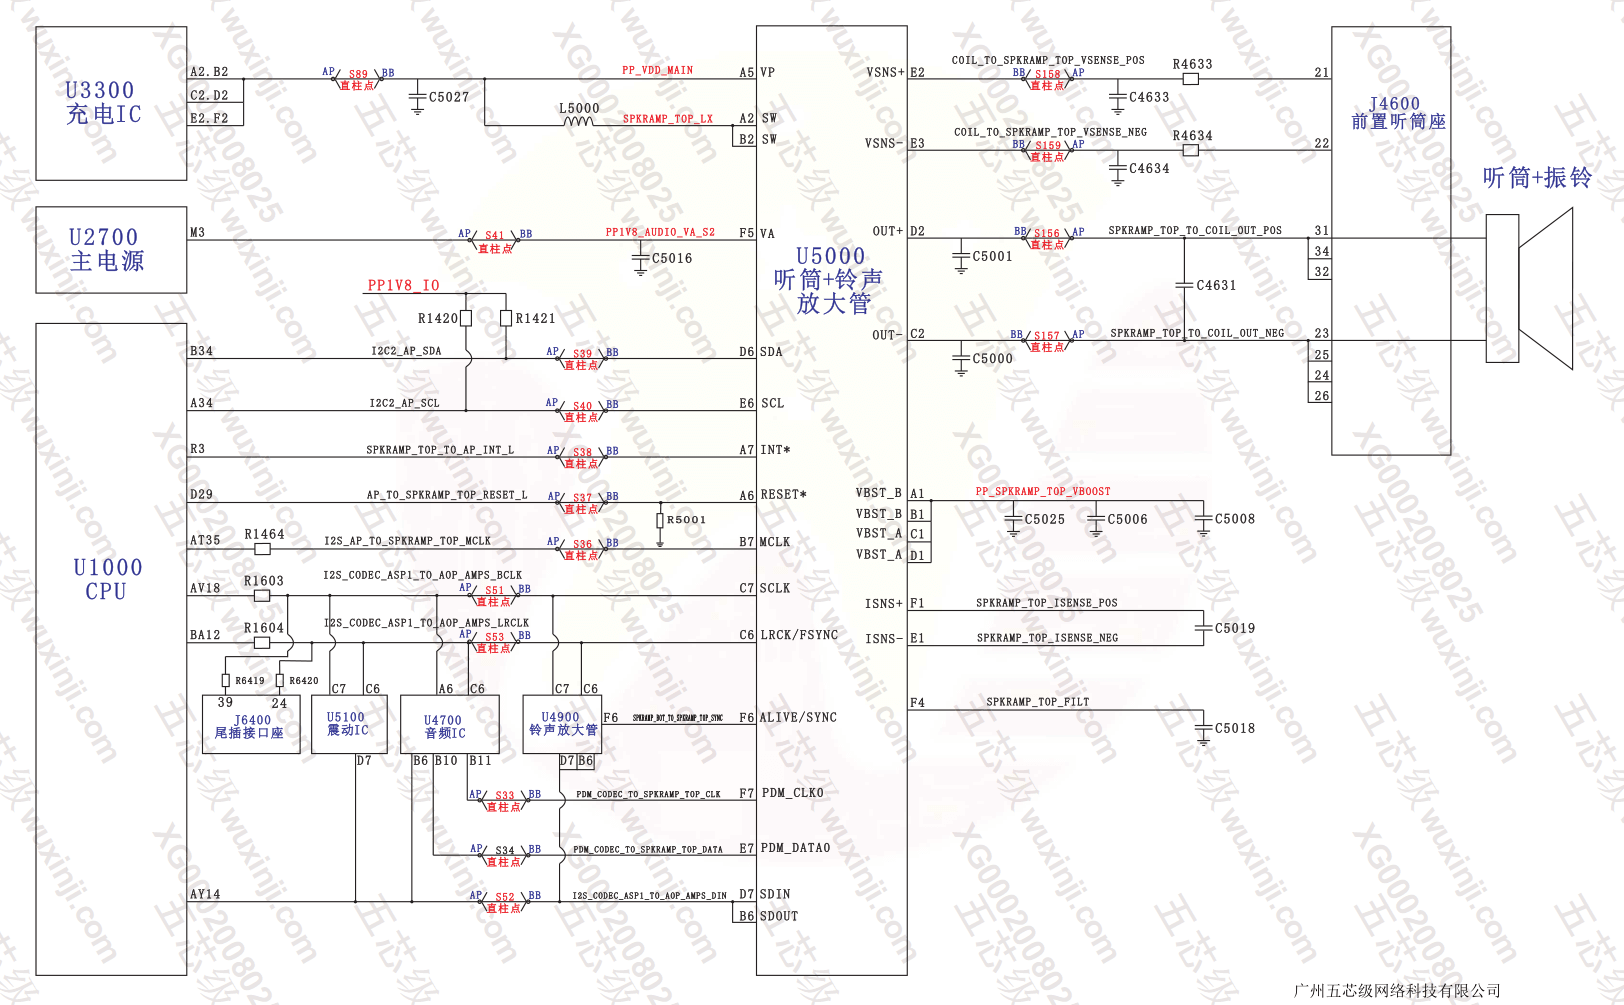 U3300
充电IC
A2.B2
C2.D2
E2.F2
AP
S89
BB
直柱点
C5027
PP_VDD_MAIN
L5000
SPKRAMP_TOP_LX
A5 VP
A2 SW
B2 SW
U2700
主电源
M3
AP
S41
BB
直柱点
PP1V8_AUDIO_VA_S2
C5016
F5 VA
PP1V8_IO
R1420
R1421
U5000
听筒+铃声
放大管
U1000
CPU
B34
I2C2_AP_SDA
AP
S39
BB
直柱点
D6 SDA
A34
I2C2_AP_SCL
AP
S40
BB
直柱点
E6 SCL
R3
SPKRAMP_TOP_TO_AP_INT_L
AP
S38
BB
直柱点
A7 INT*
D29
AP_TO_SPKRAMP_TOP_RESET_L
AP
S37
BB
直柱点
R5001
A6 RESET*
AT35
R1464
I2S_AP_TO_SPKRAMP_TOP_MCLK
AP
S36
BB
直柱点
B7 MCLK
AV18
R1603
I2S_CODEC_ASP1_TO_AOP_AMPS_BCLK
AP
S51
BB
直柱点
C7 SCLK
BA12
R1604
I2S_CODEC_ASP1_TO_AOP_AMPS_LRCLK
AP
S53
BB
直柱点
C6 LRCK/FSYNC
R6419
R6420
39
24
J6400
尾插接口座
C7
C6
U5100
震动IC
D7
A6
C6
U4700
音频IC
B6
B10
B11
C7
C6
U4900
铃声放大管
D7
B6
F6
SPKRAMP_BOT_TO_SPKRAMP_TOP_SYNC
F6 ALIVE/SYNC
AP
S33
BB
直柱点
PDM_CODEC_TO_SPKRAMP_TOP_CLK
F7 PDM_CLK0
AP
S34
BB
直柱点
PDM_CODEC_TO_SPKRAMP_TOP_DATA
E7 PDM_DATA0
AY14
AP
S52
BB
直柱点
I2S_CODEC_ASP1_TO_AOP_AMPS_DIN
D7 SDIN
B6 SDOUT
VSNS+ E2
COIL_TO_SPKRAMP_TOP_VSENSE_POS
BB
S158
AP
直柱点
C4633
R4633
21
VSNS- E3
COIL_TO_SPKRAMP_TOP_VSENSE_NEG
BB
S159
AP
直柱点
C4634
R4634
22
J4600
前置听筒座
听筒+振铃
OUT+ D2
C5001
BB
S156
AP
直柱点
SPKRAMP_TOP_TO_COIL_OUT_POS
31
34
32
C4631
OUT- C2
C5000
BB
S157
AP
直柱点
SPKRAMP_TOP_TO_COIL_OUT_NEG
23
25
24
26
VBST_B A1
VBST_B B1
VBST_A C1
VBST_A D1
PP_SPKRAMP_TOP_VBOOST
C5025
C5006
C5008
ISNS+ F1
SPKRAMP_TOP_ISENSE_POS
C5019
ISNS- E1
SPKRAMP_TOP_ISENSE_NEG
F4
SPKRAMP_TOP_FILT
C5018
广州五芯级网络科技有限公司